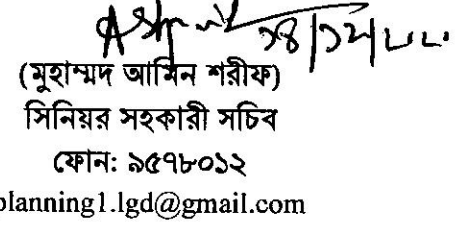 ১৪/১২/
(মুহাম্মদ আমিন শরীফ)
সিনিয়র সহকারী সচিব
ফোন: ৯৫৭৮০১২
planning1.lgd@gmail.com